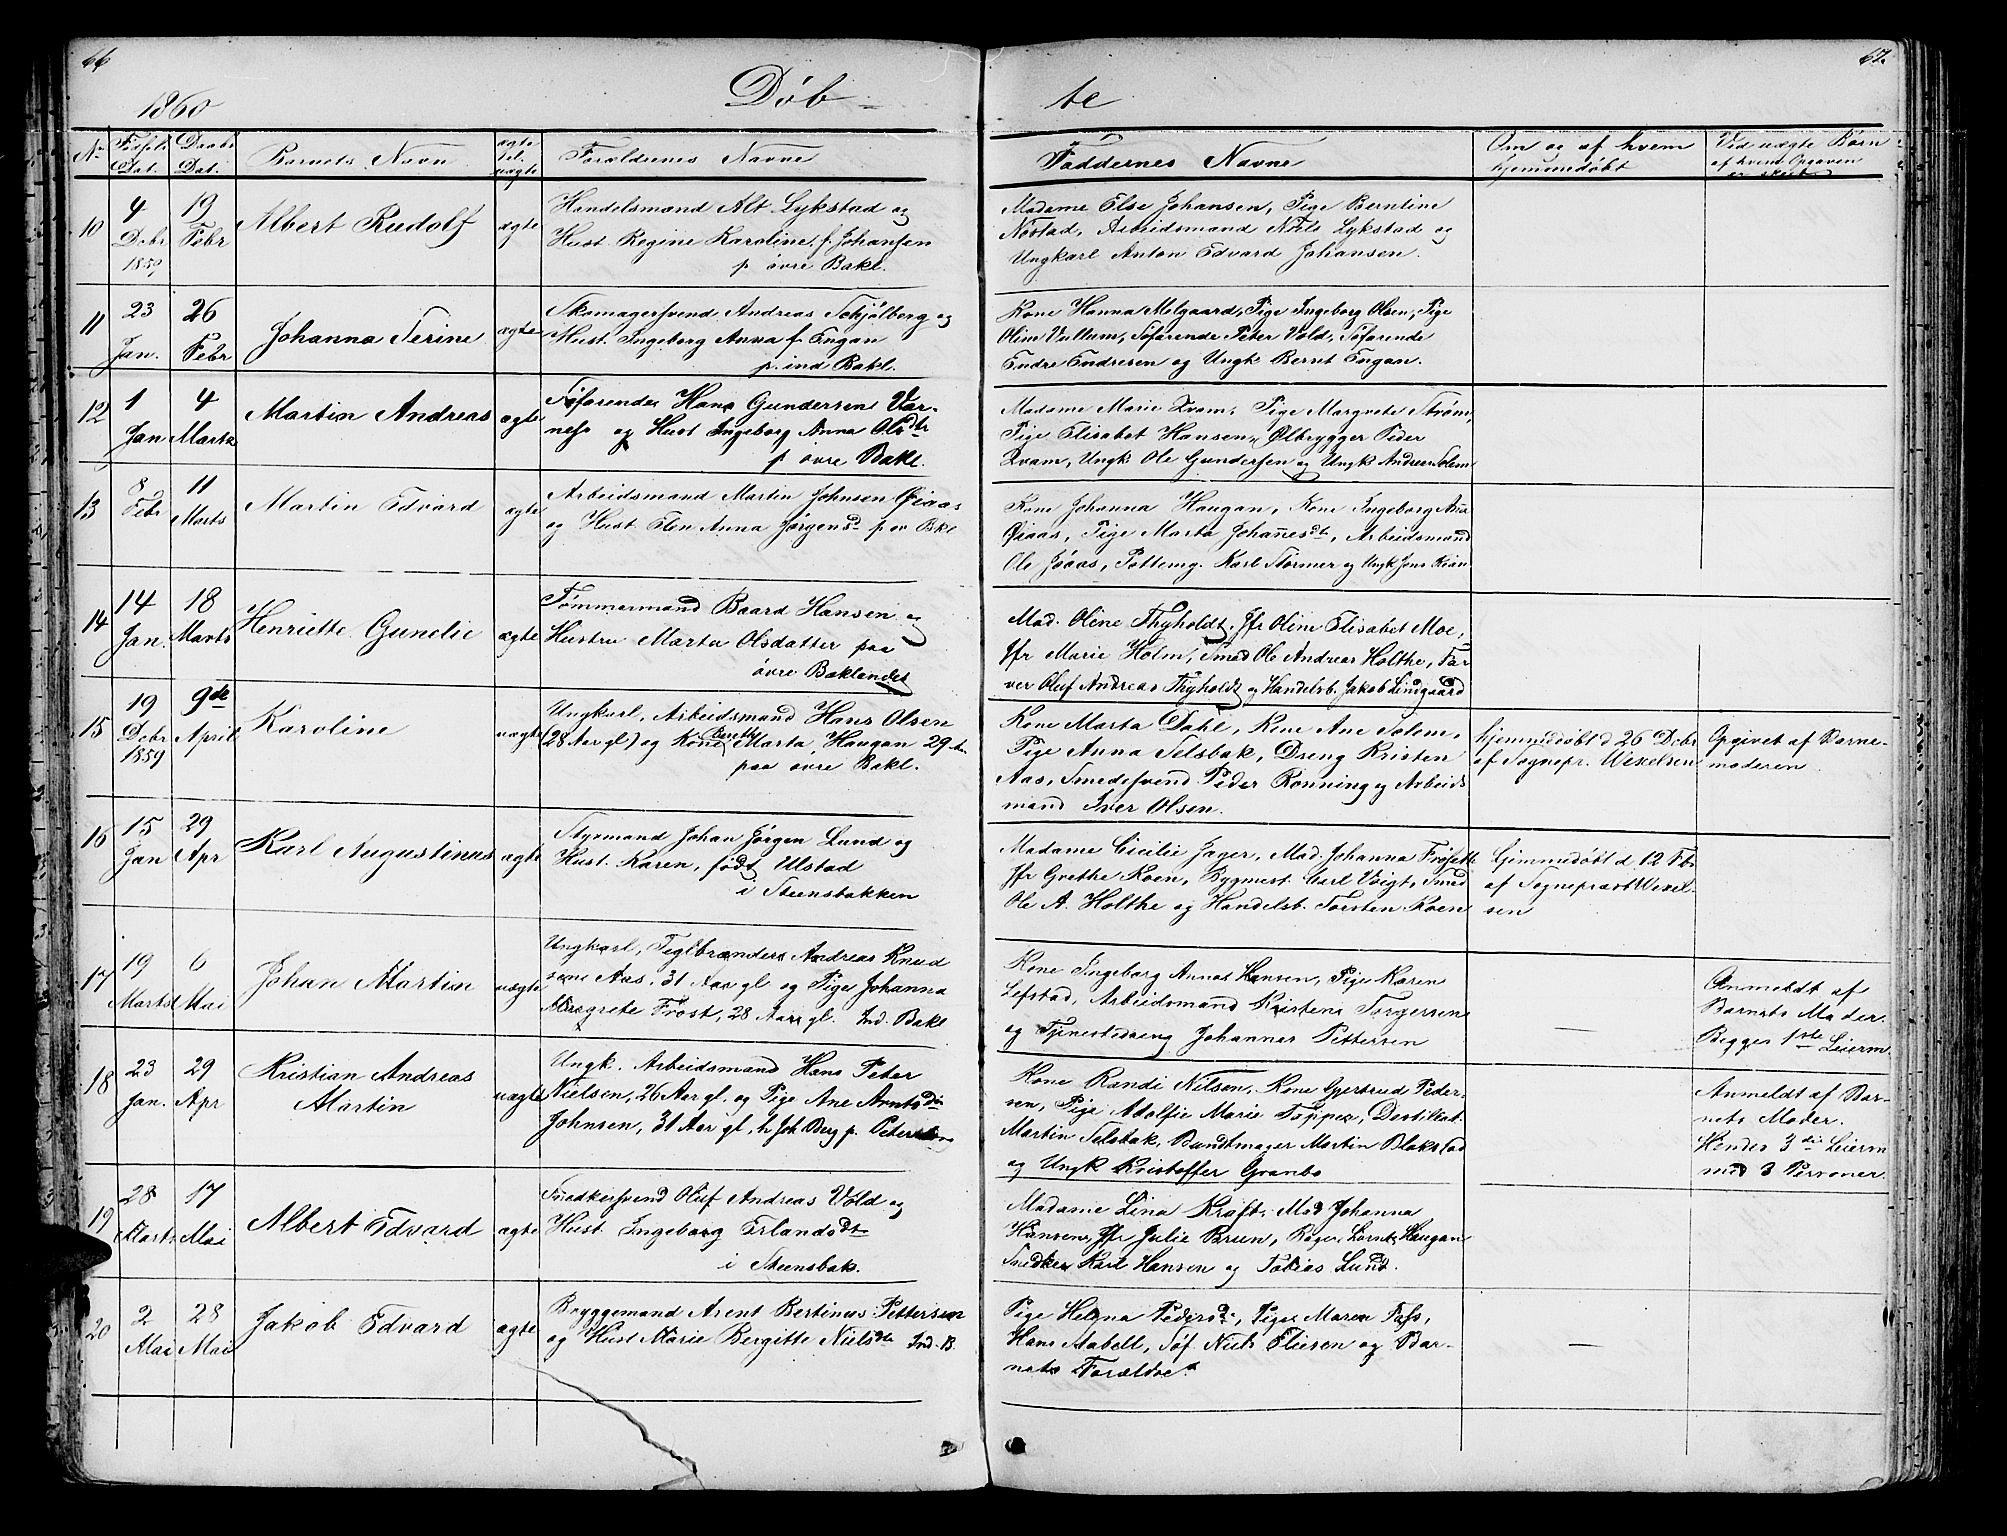 66
67.
1860
Døb-
te
No
Fødsels Dat.
Daabs Dat.
Barnets Navn
ægte el. uægte
Forældrenes Navne
Faddernes Navne
Om og af hvem hjemmedøbt
Ved uægte Børn af hvem Opgaven er skeet
10
4 Debr 1859
19 Febr
Albert Rudolf
ægte
Handelsmand Alt. Lykstad og
Hust. Regine Karoline, f. Johansen
p øvre Bakl.
Madame Else Johansen, Pige Berntine
Nøstad, Arbeidsmand Niels Lykstad og
Ungkarl Anton Edvard Johansen.
11
23 Jan.
26 Febr
Johanna Serine
ægte
Skomagersvend Andreas Schjølberg og
Hust. Ingeborg Anna f. Engan
p. ind Bakl.
Kone Hanna Melgaard, Pige Ingeborg Olsen, Pige
Oline Vullum, Søfarende Peter Vold, Søfarende
Endre Endresen og Ungk Bernt Engan.
12
1 Jan
4 Marts
Martin Andreas
ægte
Søfarende Hans Gundersen Vær-
ness og Hust Ingeborg Anna Olsdtr
p øvre Bakl.
Madame Marie Kvam, Pige Margrete Strøm,
Pige Elisabet Hansen, Ølbrygger Peder
Kvam, Ungk. Ole Gundersen og Ungk Andreas Solem
13
8 Febr
11 Marts
Martin Edvard
ægte
Arbeidsmand Martin Johnsen Øiaas
og Hust Elen Anna Jørgensd p øv Bakl
Kone Johanna Haugan, Kone Ingeborg Anna
Øiaas, Pige Marta Johannesdt, Arbeidsmand
Ole Jøaas, Pottemg. Karl Størmer og Ungk Jens
14
14 Jan.
18 Marts
Henriette Gunelie
ægte
Tømmermand Baard Hansen og
Hustru Marta Olsdatter paa
øvre Baklandet
Mad. Oline Thyholdt, Jfr Oline Elisabet Moe,
Jfr Marie Holm, Smed Ole Andreas Holthe, Far
ver Oluf Andreas Thyholdt og Handelsb. Jakob Lindgaard
15
19 Debr 1859
9de April
Karoline
uægte
Ungkarl, Arbeidsmand Hans Olsen
(28 Aar gl) og Kone Bereth Marta Haugan 29 A
paa øvre Bakl.
Kone Marta Dahl, Kone Ane Solem,
Pige Anna Selsbak, Dreng Kristen
Aas, Smedesvend Peder Rønning og Arbeids
mand Iver Olsen.
hjemmedøbt d 26 Debr
af Sognepr. Wexelsen
Opgivet af Barne-
moderen
16
15 Jan
29 Apr
Karl Augustinus
ægte
Styrmand Johan Jørgen Lund og
Hust. Karen, født Ulstad
i Steensbakken
Madame Cicilie Jager, Mad. Johanna Frøseth
Jfr Grethe Koen, Bygmest. Carl Voigt, Smed
Ole A. Holthe og Handelsb. Torsten Koen
hjemmedøbt d 12 Feb
af Sogneprest Wexel-
sen
17
19 Marts
6 Mai
Johan Martin
uægte
Ungkarl, Teglbrænder Andreas Knud
sen Aas, 31 Aar gl og Pige Johanna
Margrete Frost, 28 Aar gl. Ind. Bakl
Kone Ingeborg Anna Hansen, Pige Karen
Lefstad, Arbeidsmand Kristen Torgersen
og Tjenestedreng Johannes Pettersen
—
Anmeldt af
Barnets Moder.
Begges 1ste Leierm
18
23 Jan.
29 Apr
Kristian Andreas
Martin
uægte
Ungk. Arbeidsmand Hans Peter
Nielsen, 26 Aar gl. og Pige Ane Arntsd
Johnsen, 31 Aar gl, h Joh Berg p.
Kone Randi Nilsen, Kone Gjertrud Peder-
sen, Pige Adolfie Marie Toppe, Destillat.
Martin Selsbak, Bundtmager Martin Blakstad
og Ungk Kristoffer Granbo
—
Anmeldt af Bar-
nets Moder.
Hendes 3die Leierm
med 3 Personer.
19
28 Marts
17 Mai
Albert Edvard
ægte
Snedkersvend Oluf Andreas Vold og
Hust Ingeborg Erlandsdt
i Steensbak.
Madame Lina Kraft, Mad Johanna
Hansen, Jfr Julie Brun, Lornts Haugan
Snedker Karl Hansen og Tobias Lund.
20
2 Mai
28 Mai
Jakob Edvard
ægte
Bryggemand Arent Bertinus Pettersen
og Hust Marie Bergitte Nielsdtr Ind. B.
Pige Helena Pedersdt, Pige Maren Fass,
Hans Aabell, Søf Niels Eliesen og Bar-
nets Forældre.
—